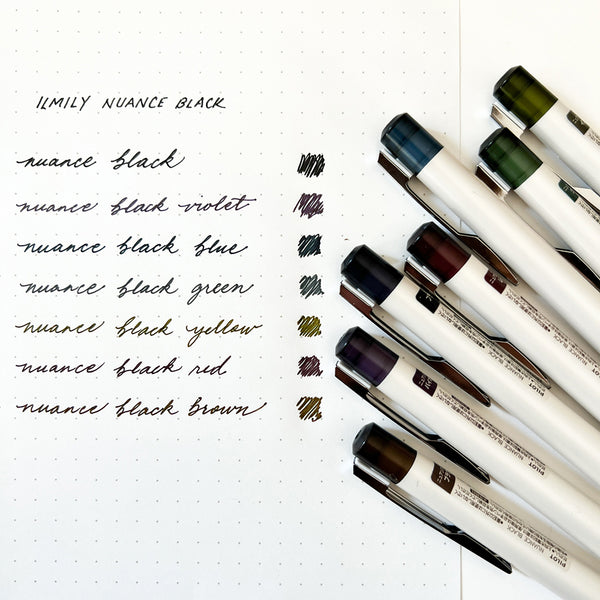 ILMILY NUANCE BLACK
nuance black
nuance black violet
nuance black blue
nuance black green
nuance black yellow
nuance black red
nuance black brown
PILOT
NUANCE BLACK
PILOT
NUANCE BLACK
PILOT
NUANCE BLACK